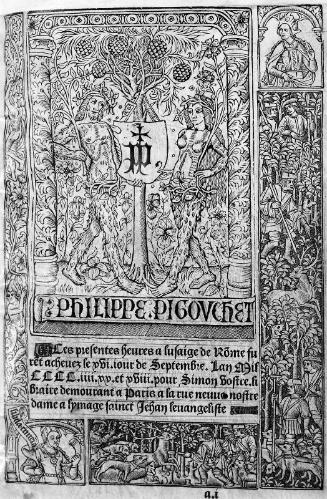 PHILIPPE PIGOVCHET
Ces presentes heures a lusaige de Rõme fu
rẽt acheuez le xvi. iour de Septembre. Lan Mil
CCCC.iiii.xx. et xviii. pour Simon vostre. li
braire demourant a Paris a la rue neuue nostre
dame a lymage sainct Jehan leuangeliste
a.i